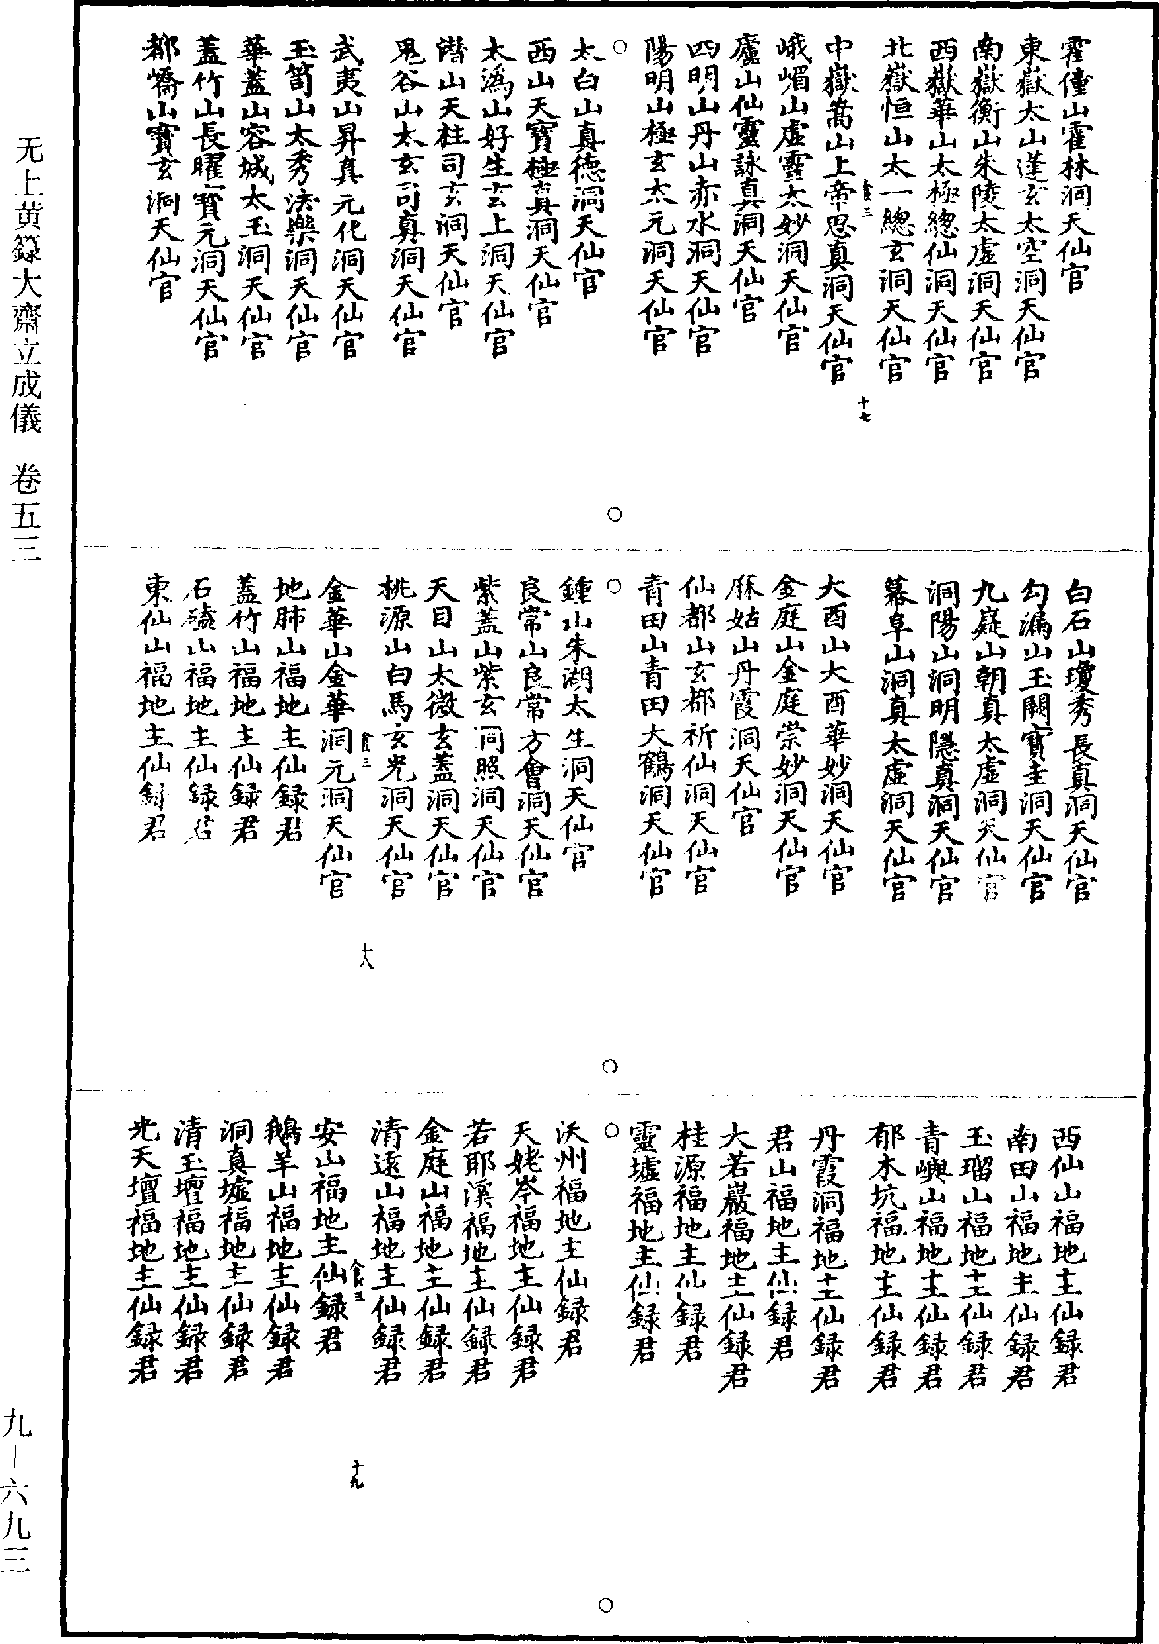 霍僮山霍林洞天仙官
東嶽太山蓬玄太空洞天仙官
南嶽衡山朱陵太虛洞天仙官
西嶽華山太極總仙洞天仙官
北嶽恒山太一總玄洞天仙官
十七
中嶽嵩山上帝思真洞天仙官
峨嵋山虛靈太妙洞天仙官
廬山仙靈詠真洞天仙官
四明山丹山赤水洞天仙官
陽明山極玄太元洞天仙官
太白山真德洞天仙官
西山天寶極真洞天仙官
太溈山好生玄上洞天仙官
潛山天柱司玄洞天仙官
鬼谷山太玄司真洞天仙官
武夷山昇真元化洞天仙官
玉笥山太秀法樂洞天仙官
華蓋山容城太玉洞天仙官
蓋竹山長曜寶元洞天仙官
都嶠山寶玄洞天仙官
白石山瓊秀長真洞天仙官
勾漏山玉闕寶圭洞天仙官
九嶷山朝真太虛洞天仙官
洞陽山洞明隱真洞天仙官
幕阜山洞真太虛洞天仙官
大酉山大酉華妙洞天仙官
金庭山金庭崇妙洞天仙官
麻姑山丹霞洞天仙官
仙都山玄都祈仙洞天仙官
青田山青田大鶴洞天仙官
鍾山朱湖太生洞天仙官
良常山良常方會洞天仙官
紫蓋山紫玄洞照洞天仙官
天目山太微玄蓋洞天仙官
桃源山白馬玄光洞天仙官
金華山金華洞元洞天仙官
地肺山福地主仙録君
蓋竹山福地主仙録君
石磕山福地主仙録君
東仙山福地主仙録君
西仙山福地主仙録君
南田山福地主仙録君
玉瑠山福地主仙録君
青嶼山福地主仙録君
郁木坑福地主仙録君
丹霞洞福地主仙録君
君山福地主仙録君
大若巖福地主仙録君
桂源福地主仙録君
靈墟福地主仙録君
沃州福地主仙録君
天姥岑福地主仙録君
若耶溪福地主仙録君
金庭山福地主仙録君
清遠山福地主仙録君
十九
安山福地主仙録君
鵝羊山福地主仙録君
洞真墟福地主仙録君
清玉壇福地主仙録君
光天壇福地主仙録君
无上黄籙大齋立成儀 卷五三
九－六九三